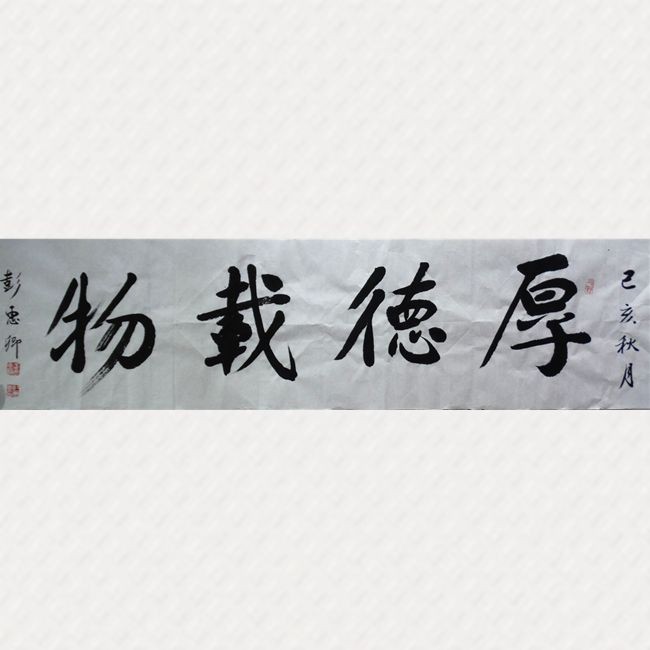 己亥秋月
厚德載物
彭惠卿